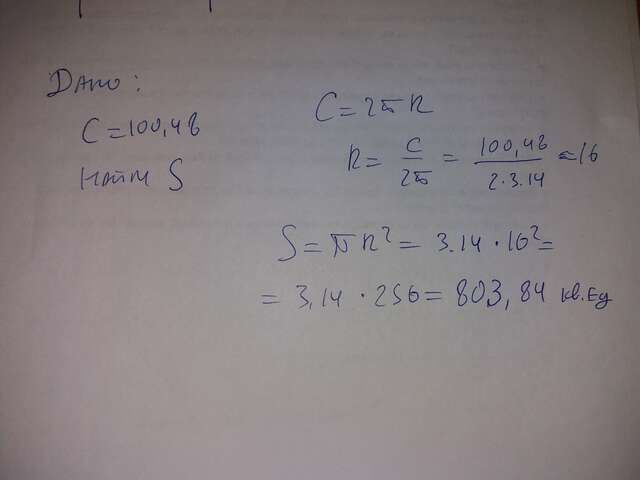 Дано:
C = 100,48
Найти S
C = 2πR
R = C / 2π = 100,48 / 2·3.14 = 16
S = πR² = 3.14 · 16² =
= 3,14 · 256 = 803,84 кв.ед